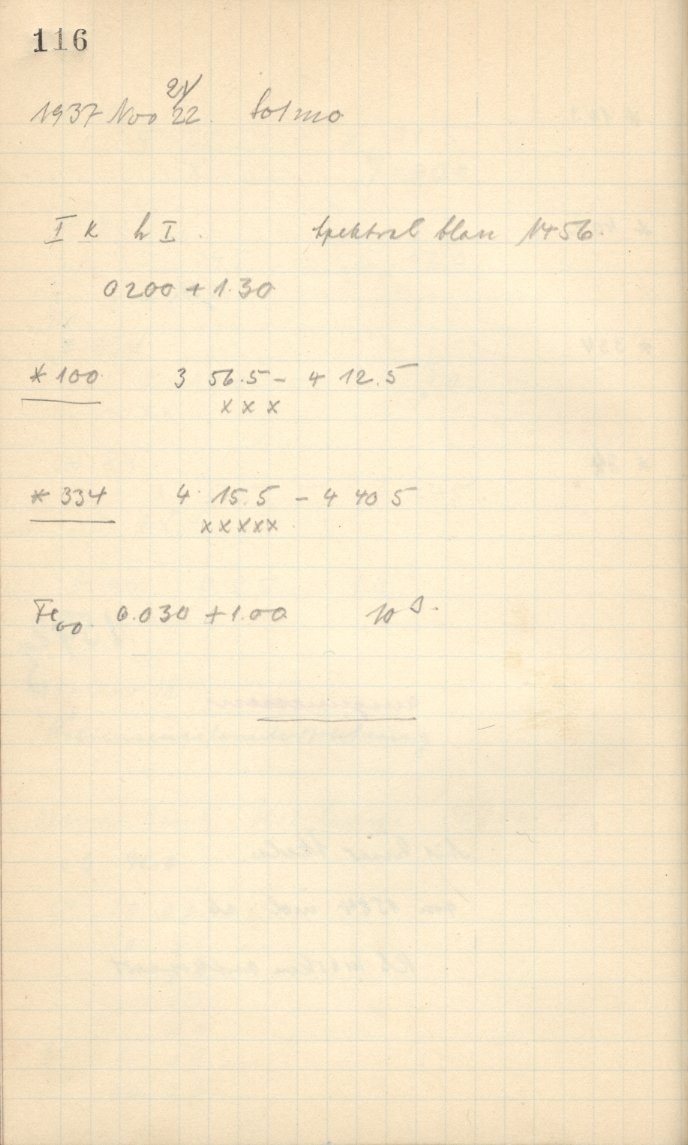 116
21
1937 Nov 22.
I K h I. Spektral blau 1456.
0200 + 1.30
*100 3 56.5 - 4 12.5
x x x
*334 4 15.5 - 4 40 5
xxxxx
Fe₀₀. 0.030 + 1.00 10 s.